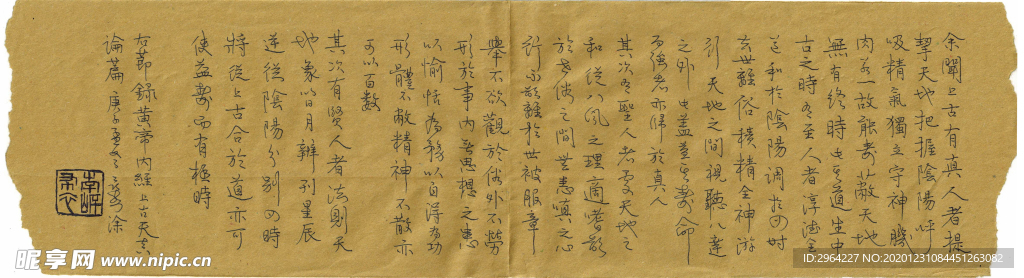 余聞上古有真人者提
挈天地把握陰陽呼
吸精氣獨立守神肌
肉若一故能壽蔽天地
無有終時此其道生中
古之時有至人者淳德全
道和於陰陽調於四時
去世離俗積精全神游
行天地之間視聽八達
之外此蓋益其壽命
而強者亦歸於真人
其次有聖人者處天地之
和從八風之理適嗜欲
於世俗之間無恚嗔之心
行不欲離於世被服章
舉不欲觀於俗外不勞
形於事內無思想之患
以愉恬為務以自得為功
形體不敝精神不散亦
可以百數
其次有賢人者法則天
地象似日月辯列星辰
逆從陰陽分別四時
將從上古合於道亦可
使益壽而有極時
右節錄黃帝內經上古天真
論篇庚子
昵享网 www.nipic.cn
ID:2964227 NO:20201231084451263082